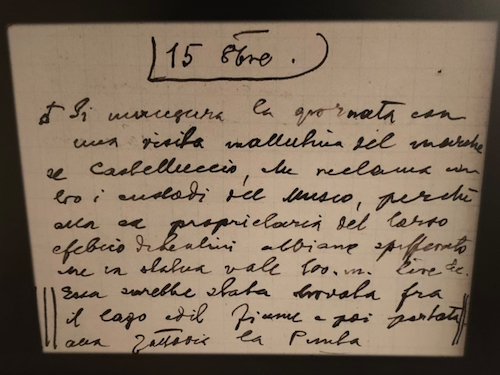 15 8bre.
Si inaugura la giornata con
una visita mattutina del marchese
di Castelluccio, che reclama con
tro i custodi del Museo, perchè
alla ex proprietaria del torso
efebico abbiano spifferato
che la statua vale 100.m. lire &c.
Essa sarebbe stata trovata fra
il lago ed il fiume e poi portata
alla la Pimba